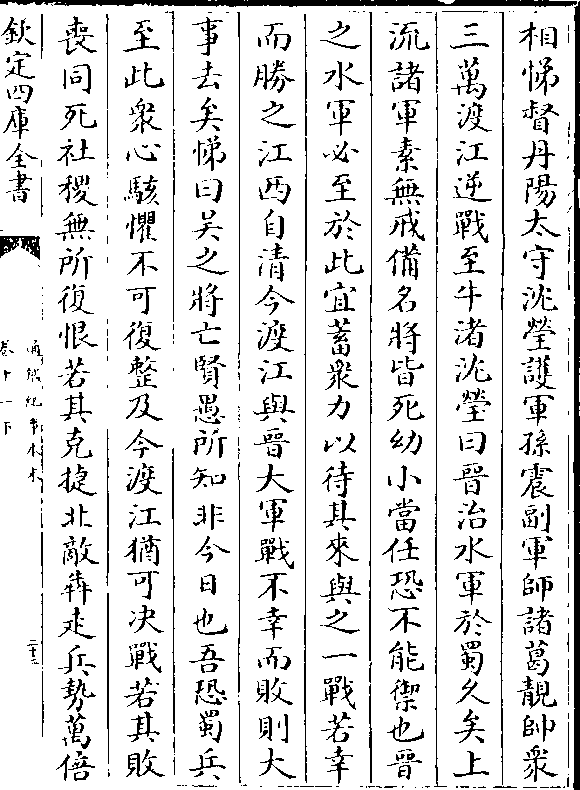 相悌督丹陽太守沈瑩護軍孫震副軍師諸葛靚帥衆
三萬渡江逆戰至牛渚沈瑩曰晉治水軍於蜀久矣上
流諸軍素無戒備名將皆死幼小當任恐不能禦也晉
之水軍必至於此宜蓄衆力以待其來與之一戰若幸
而勝之江西自清今渡江與晉大軍戰不幸而敗則大
事去矣悌曰吳之將亡賢愚所知非今日也吾恐蜀兵
至此衆心駭懼不可復整及今渡江猶可决戰若其敗
喪同死社稷無所復恨若其克捷北敵犇走兵勢萬倍
欽定四庫全書
通鑑紀事本末
卷十一下
二十三